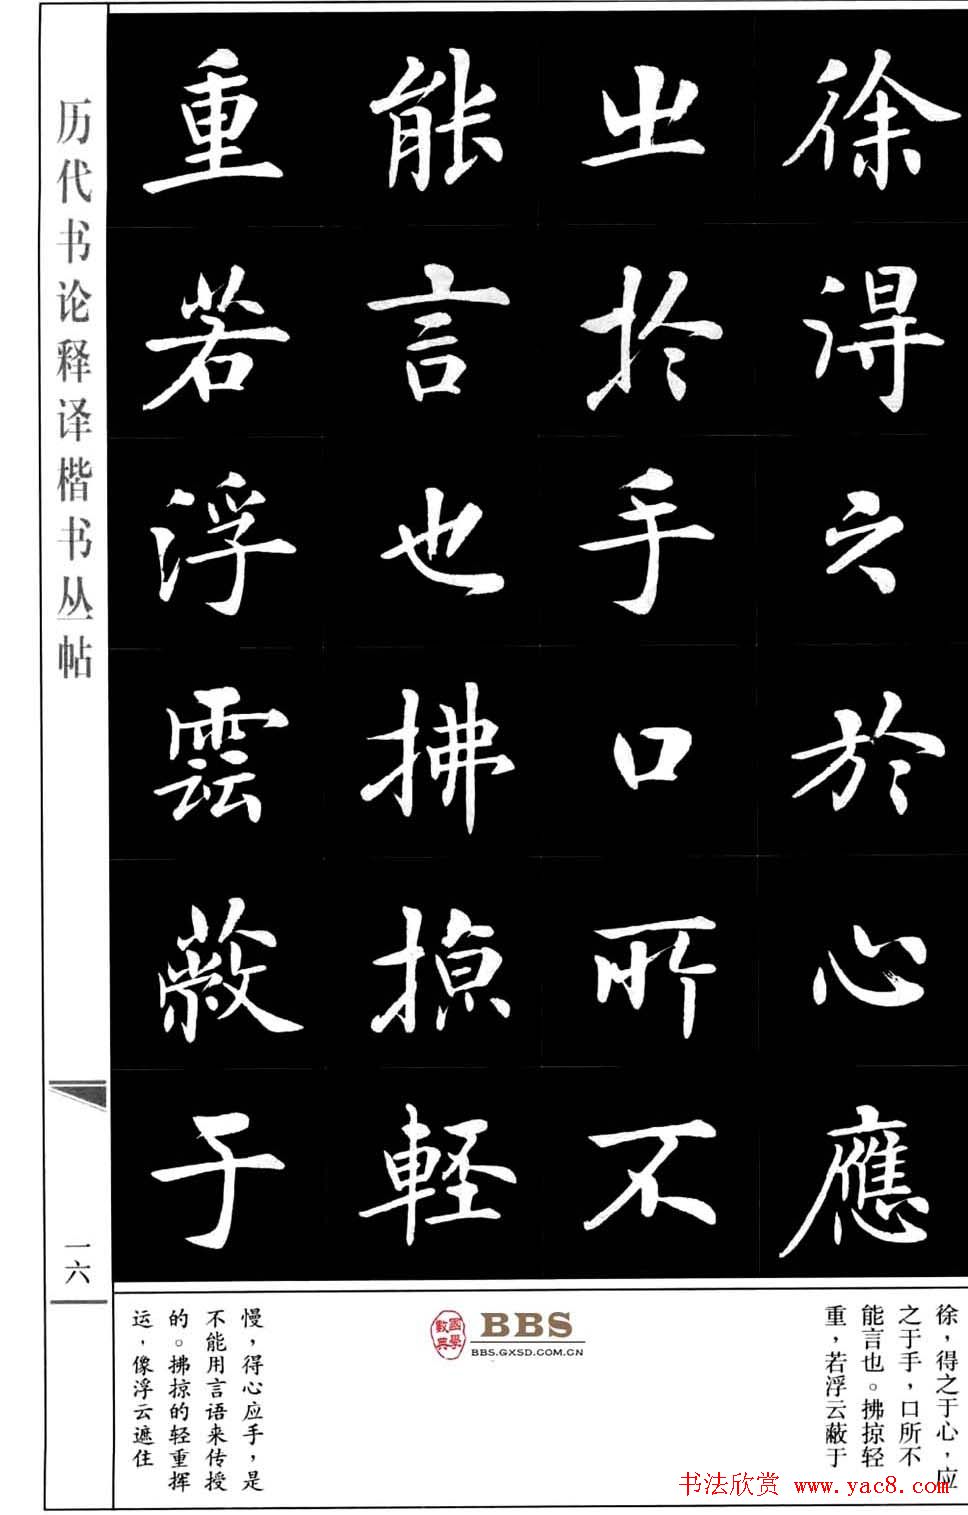 徐得之於心應
出於手口所不
能言也拂掠輕
重若浮雲蔽于
历代书论释译楷书丛帖
一六
徐，得之于心，应
之于手，口所不
能言也。拂掠轻
重，若浮云蔽于
國學
數典
BBS
BBS.GXSD.COM.CN
慢，得心应手，是
不能用言语来传授
的。拂掠的轻重挥
运，像浮云遮住
书法欣赏 www.yac8.com